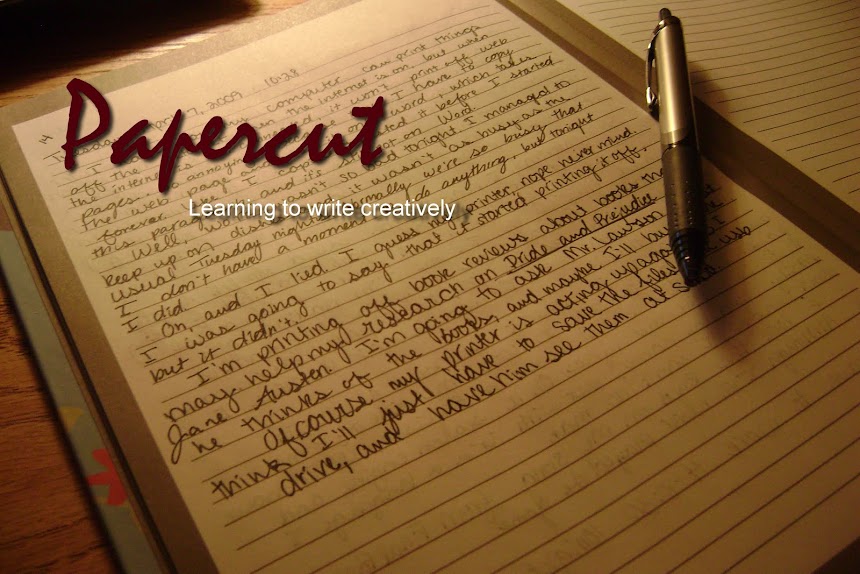 Papercut
Learning to write creatively
7, 2009 10:28
my computer can print things
off the when the internet is on, but when
the internet it won't print off web
pages. annoying I have to copy
the web page and on word, which takes
forever. I copied it before I started
this and it's not on Word.
Well, wasn't so bad tonight. I managed to
keep up on dishes it wasn't as busy as the
usual Tuesday night normally we're so busy that
I don't have a moment to do anything, but tonight
I did.
Oh, and I lied. I guess my printer, nope never mind.
I was going to say that it started printing it off,
but it didn't.
I'm printing off book reviews about books
may help my research on Pride and Prejudice
Jane Austen. I'm going to ask Mr. Lawson
he thinks of the books, and maybe I'll
Of course my printer is acting up again
think I'll just have to save the files usb
drive, and have him see them at